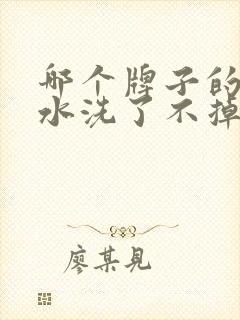 哪个牌子的
水洗了不掉
廖某见